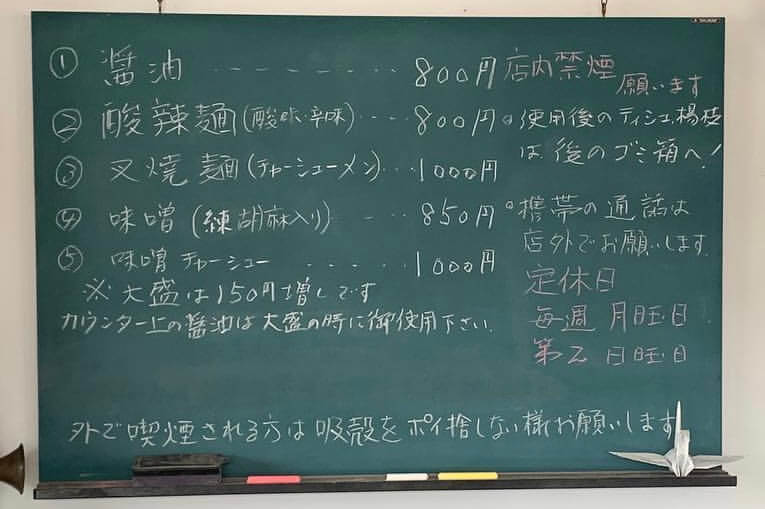 ① 醤油 ------- 800円
② 酸辣麺(酸味・辛味)---- 800円
③ 叉焼麺(チャーシューメン)--- 1000円
④ 味噌(練胡麻入り)---- 850円
⑤ 味噌チャーシュー ------ 1000円
※大盛は150円増しです
カウンター上の醤油は大盛の時に御使用下さい.
店内禁煙
願います
。使用後のティシュ楊枝
は後のゴミ箱へ!
。携帯の通話は
店外でお願いします.
定休日
毎週 月曜日
第2 日曜日
外で喫煙される方は吸殻をポイ捨しない様お願いします